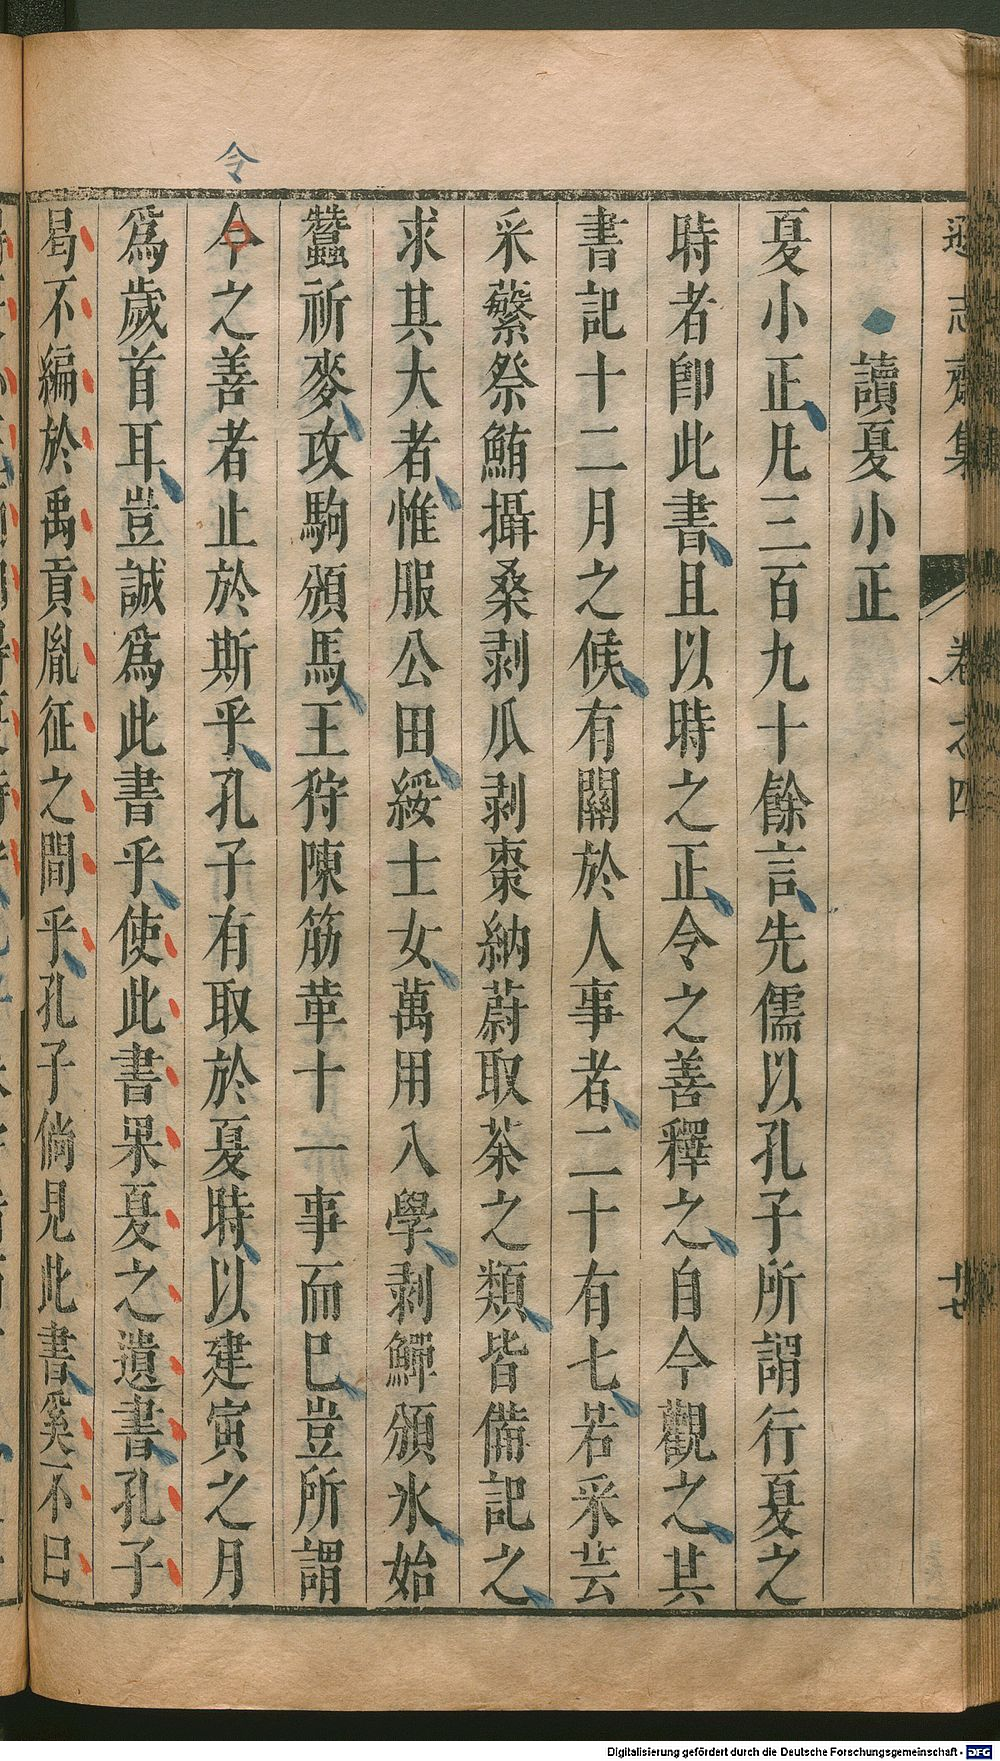 遜志齋集 卷之四 廿
讀夏小正
夏小正凡三百九十餘言先儒以孔子所謂行夏之
時者卽此書且以時之正令之善釋之自今觀之其
書記十二月之候有關於人事者二十有七若采芸
采蘩祭鮪攝桑剥瓜剥棗納蔚取荼之類皆備記之
求其大者惟服公田綏士女萬用入學剥鱓頒氷始
蠶祈麥攻駒頒馬王狩陳筋革十一事而已豈所謂
今之善者止於斯乎孔子有取於夏時以建寅之月
爲歲首耳豈誠爲此書乎使此書果夏之遺書孔子
曷不編於禹貢胤征之間乎孔子倘見此書奚不曰
令
Digitalisierung gefördert durch die Deutsche Forschungsgemeinschaft - DFG